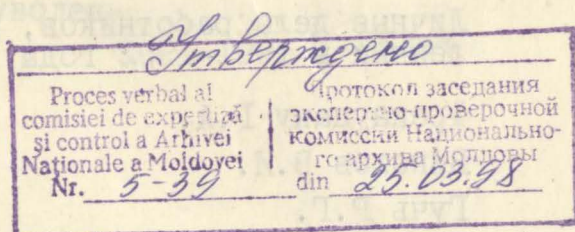 Утверждено
Proces verbal al
comisiei de expertiză
şi control a Arhivei
Naţionale a Moldovei
Nr. 5-39
Протокол заседания
экспертно-проверочной
комиссии Национально-
го архива Молдовы
din 25.03.98